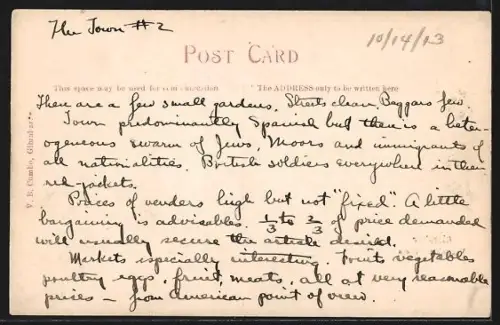 The Town #2
10/14/13
POST CARD
This space may be used for communication
The ADDRESS only to be written here
There are a few small gardens. Streets clean, Baggars few.
Town predominantly Spanish but there is a heter-
ogeneous swarm of Jews, Moors and immigrants of
all nationalities. British soldiers everywhere in their
red jackets.
Prices of venders high but not "fixed". A little
bargaining is advisable. 1/3 to 2/3 of price demanded
will usually secure the article desired.
Markets especially interesting. Fruits vegetables
poultry eggs, fruit, meats, all at very reasonable
prices – from American point of view.
V. B. Cumbo, Gibraltar